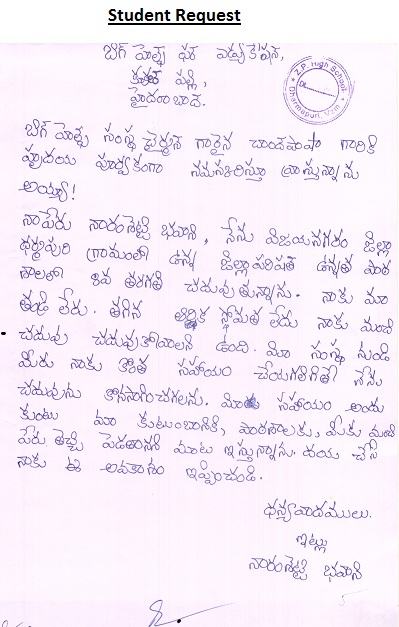 Student Request
బిగ్ హెల్ప్ ఫర్ ఎడ్యుకేషన్,
పల్లి,
హైదరాబాద్.
Z.P. High School
Dharmapuri, Vzm
బిగ్ హెల్ప్ సంస్థ ఛైర్మన్ గారైన చాంద్‌పాషా గారికి
హృదయ పూర్వకంగా నమస్కరిస్తూ వ్రాస్తున్నాను
అయ్యా!
నా పేరు నారంశెట్టి భవాని, నేను విజయనగరం జిల్లా
ధర్మపురి గ్రామంలో ఉన్న జిల్లా పరిషత్ ఉన్నత పాఠ
శాలలో 8వ తరగతి చదువుతున్నాను. నాకు మా
తండ్రి లేరు. తగిన ఆర్థిక స్థోమత లేదు నాకు మంచి
చదువు చదువుకోవాలని ఉంది. మీ సంస్థ నుండి
మీరు నాకు కొంత సహాయం చేయగలిగితే నేను
చదువును కొనసాగించగలను. మీరు సహాయం అందు
కుంటు మా కుటుంబానికి, పాఠశాలకు, మీకు మంచి
పేరు తెచ్చి పెడతానని మాట ఇస్తున్నాను. దయ చేసి
నాకు ఈ అవకాశం ఇప్పించండి.
ధన్యవాదములు.
ఇట్లు
నారంశెట్టి భవాని